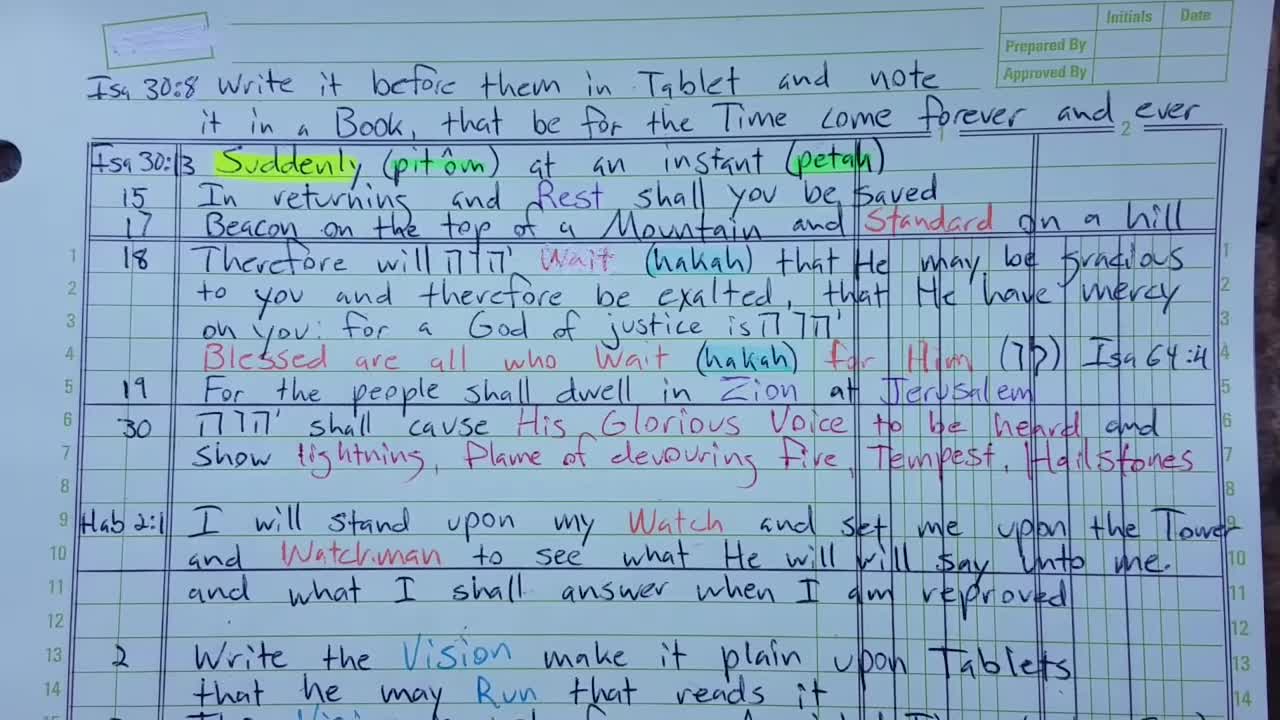 Initials Date
Prepared By
Approved By
Isa 30:8 Write it before them in Tablet and note
it in a Book, that be for the Time come forever and ever
1 2
Isa 30:13 Suddenly (pitôm) at an instant (petah)
15 In returning and Rest shall you be saved
17 Beacon on the top of a Mountain and Standard on a hill
1 18 Therefore will יהוה Wait (hakah) that He may be gracious 1
2 to you and therefore be exalted, that He have mercy 2
3 on you: for a God of justice is יהוה 3
4 Blessed are all who Wait (hakah) for Him Isa 64:4 4
5 19 For the people shall dwell in Zion at Jerusalem 5
6 30 יהוה shall cause His Glorious Voice to be heard and 6
7 show lightning, Flame of devouring fire, Tempest, Hailstones 7
8 8
9 Hab 2:1 I will stand upon my Watch and set me upon the Tower 9
10 and Watchman to see what He will will say unto me. 10
11 and what I shall answer when I am reproved 11
12 12
13 2 Write the Vision make it plain upon Tablets 13
14 that he may Run that reads it 14